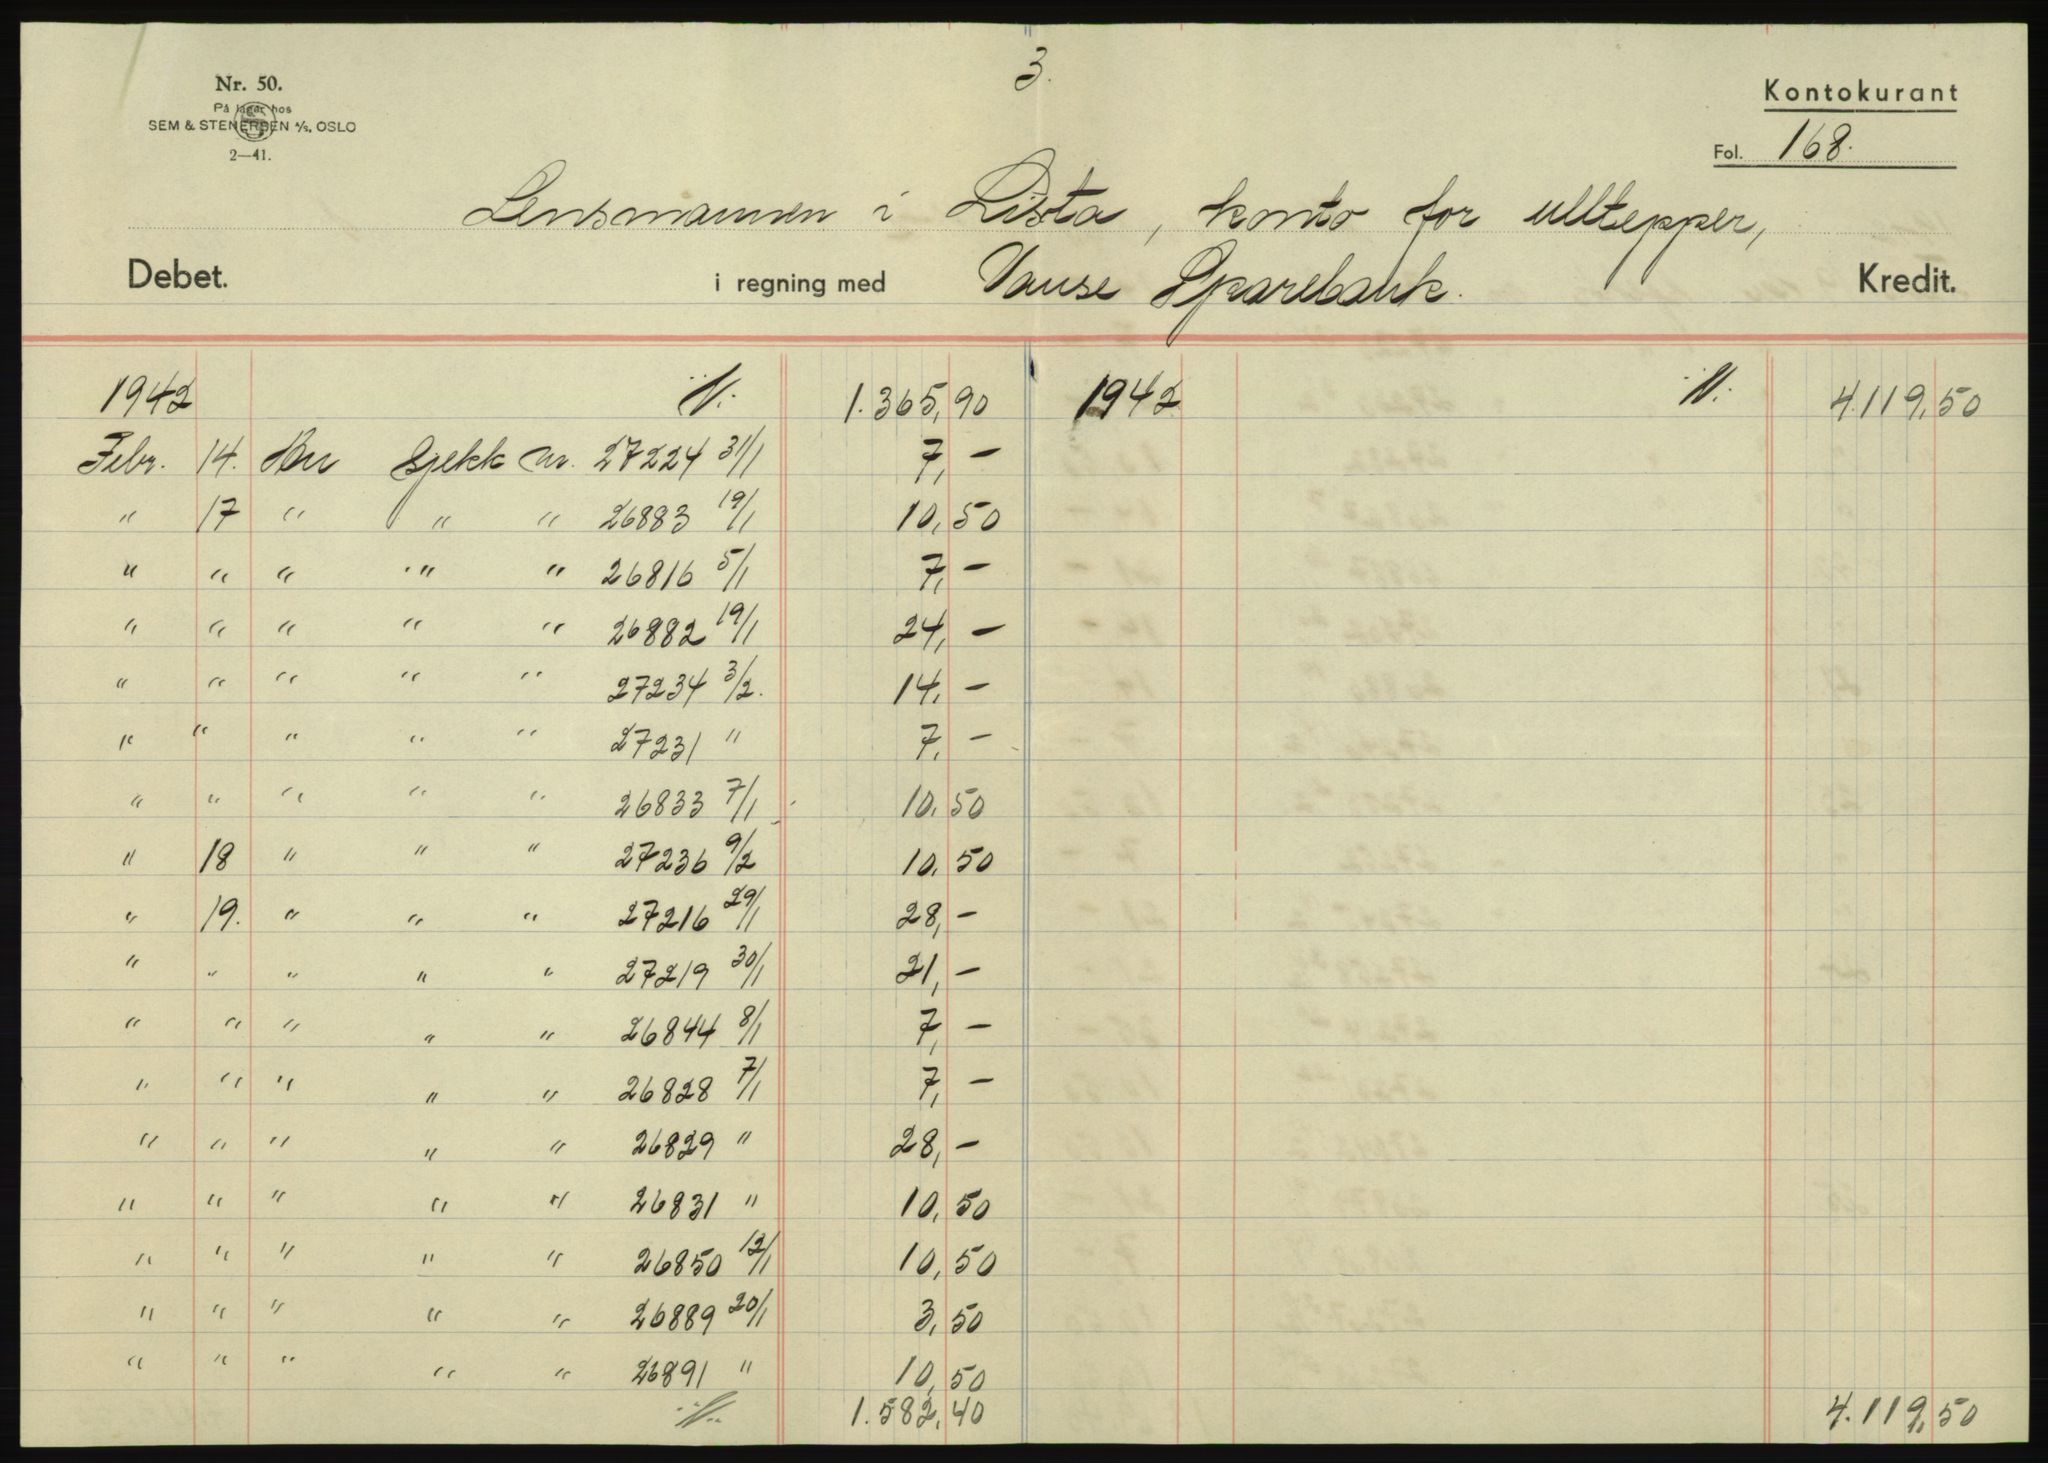 3.
Nr. 50.
På lager hos
SEM & STENERSEN A/S, OSLO
2—41.
Kontokurant
Fol. 168.
Lensmannen i Lista, konto for ulltepper,
Debet. i regning med Vanse Sparebank. Kredit.
1942 1.365,90 1942 4.119,50
Febr. 14. Hev sjekk nr. 27224 31/1 7,—
" 17 " " " 26883 19/1 10,50
" " " " " 26816 5/1 7,—
" " " " " 26882 19/1 24,—
" " " " " 27234 3/2. 14,—
" " " " " 27231 " 7,—
" " " " " 26833 7/1 10,50
" 18 " " " 27236 9/2 10,50
" 19. " " " 27216 29/1 28,—
" " " " " 27219 30/1 21,—
" " " " " 26844 8/1 7,—
" " " " " 26828 7/1 7,—
" " " " " 26829 " 28,—
" " " " " 26831 " 10,50
" " " " " 26850 12/1 10,50
" " " " " 26889 20/1 3,50
" " " " " 26891 " 10,50
1.582,40 4.119,50